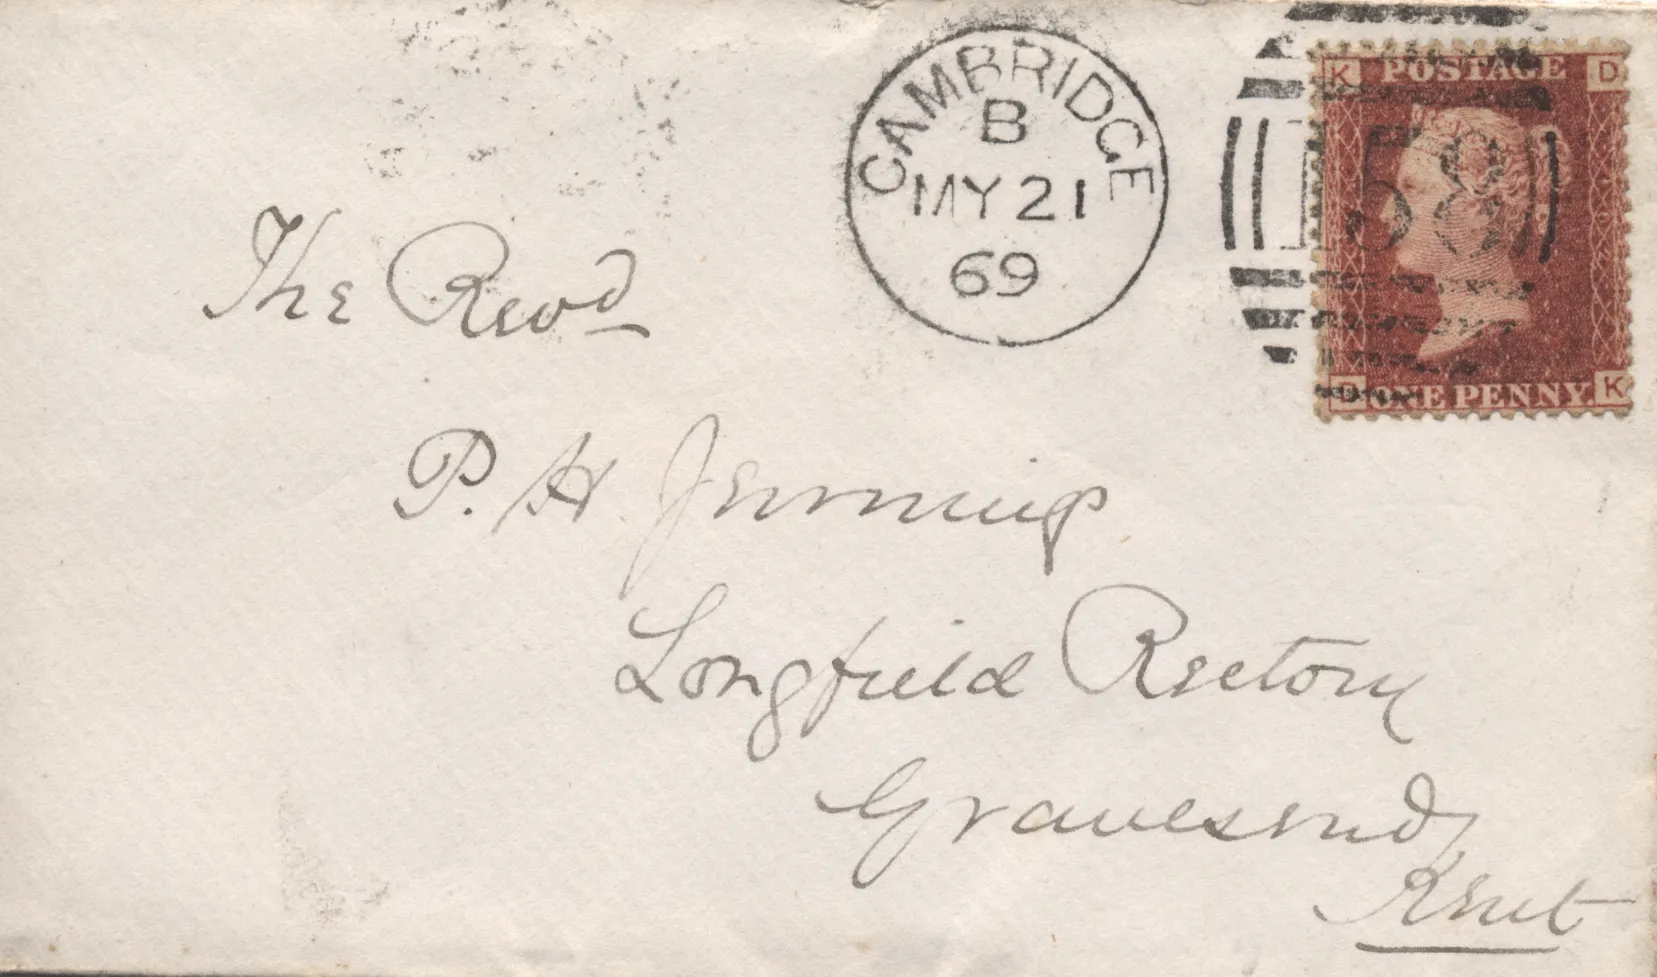 CAMBRIDGE
B
MY 21
69
158
K POSTAGE D
D ONE PENNY. K
The Revd
P. H Jennings
Longfield Rectory
Gravesend
Kent